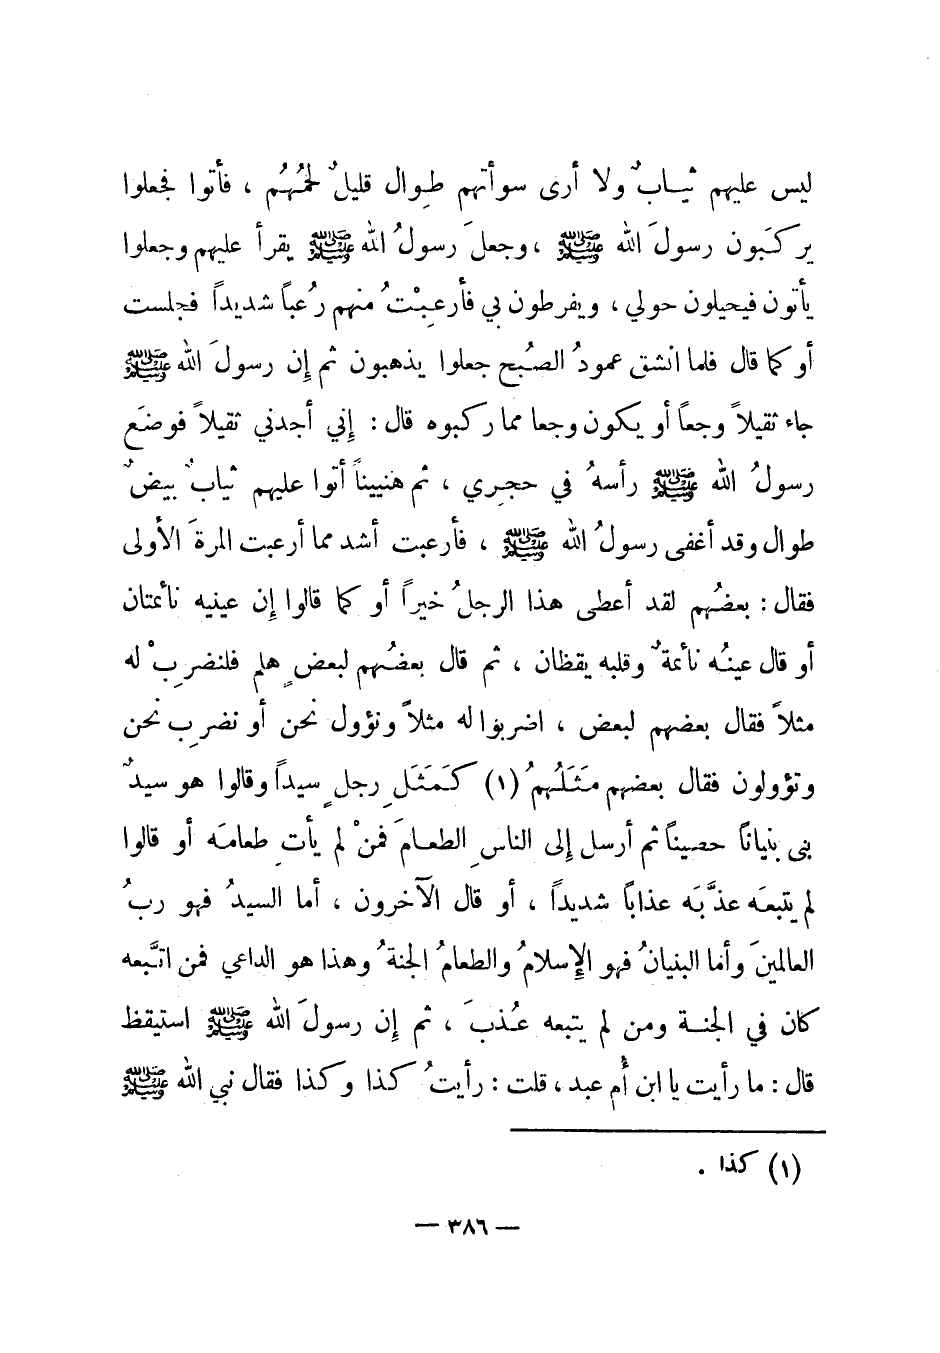 ليس عليهم ثيــابٌ ولا أرى سوآتهم طِـوال قليلٌ لحمُـهُم ، فأتوا فجعلوا
يركـَبون رسولَ الله ﷺ ، وجعلَ رسولُ الله ﷺ يقرأ عليهم وجعلوا
يأتون فيحيلون حولي ، ويفرطون بي فأرعِبْتُ منهم رُعباً شديداً فجلست
أو كما قال فلما انشق عمودُ الصبح جعلوا يذهبون ثم إن رسولَ الله ﷺ
جاء ثقيلاً وجعاً أو يكون وجعا مما ركبوه قال : إني أجدني ثقيلاً فوضَع
رسولُ الله ﷺ رأسهُ في حجـري ، ثم هنييناً أتوا عليهم ثيابٌ بيضٌ
طوال وقد أغفى رسولُ الله ﷺ ، فأرعبت أشد مما أرعبت المرةَ الأولى
فقال : بعضُهم لقد أعطى هذا الرجلُ خيراً أو كما قالوا إن عينيه نائمتان
أو قال عينُه نائمةٌ وقلبه يقظان ، ثم قال بعضُهم لبعضٍ هلم فلنضرِبْ له
مثلاً فقال بعضهم لبعض ، اضربوا له مثلاً ونؤول نحن أو نضرِب نحن
وتؤولون فقال بعضهم مَثَلُـهمُ (١) كـَمَثَلِ رجلٍ سيداً وقالوا هو سيدٌ
بنى بنياناً حصيناً ثم أرسل إلى الناسِ الطعـامَ فمنْ لم يأتِ طعامَه أو قالوا
لم يتبعَه عذَّبَه عذاباً شديداً ، أو قال الآخرون ، أما السيدُ فهو ربُ
العالمينَ وأما البنيانُ فهو الإسلامُ والطعامُ الجنةُ وهذا هو الداعي فمن اتَّبعه
كان في الجنــة ومن لم يتبعه عـُذبَ ، ثم إن رسولَ الله ﷺ استيقظ
قال : ما رأيت يا ابن أُم عبد ، قلت : رأيتُ كذا وكذا فقال نبي الله ﷺ
(١) كذا .
— ٣٨٦ —